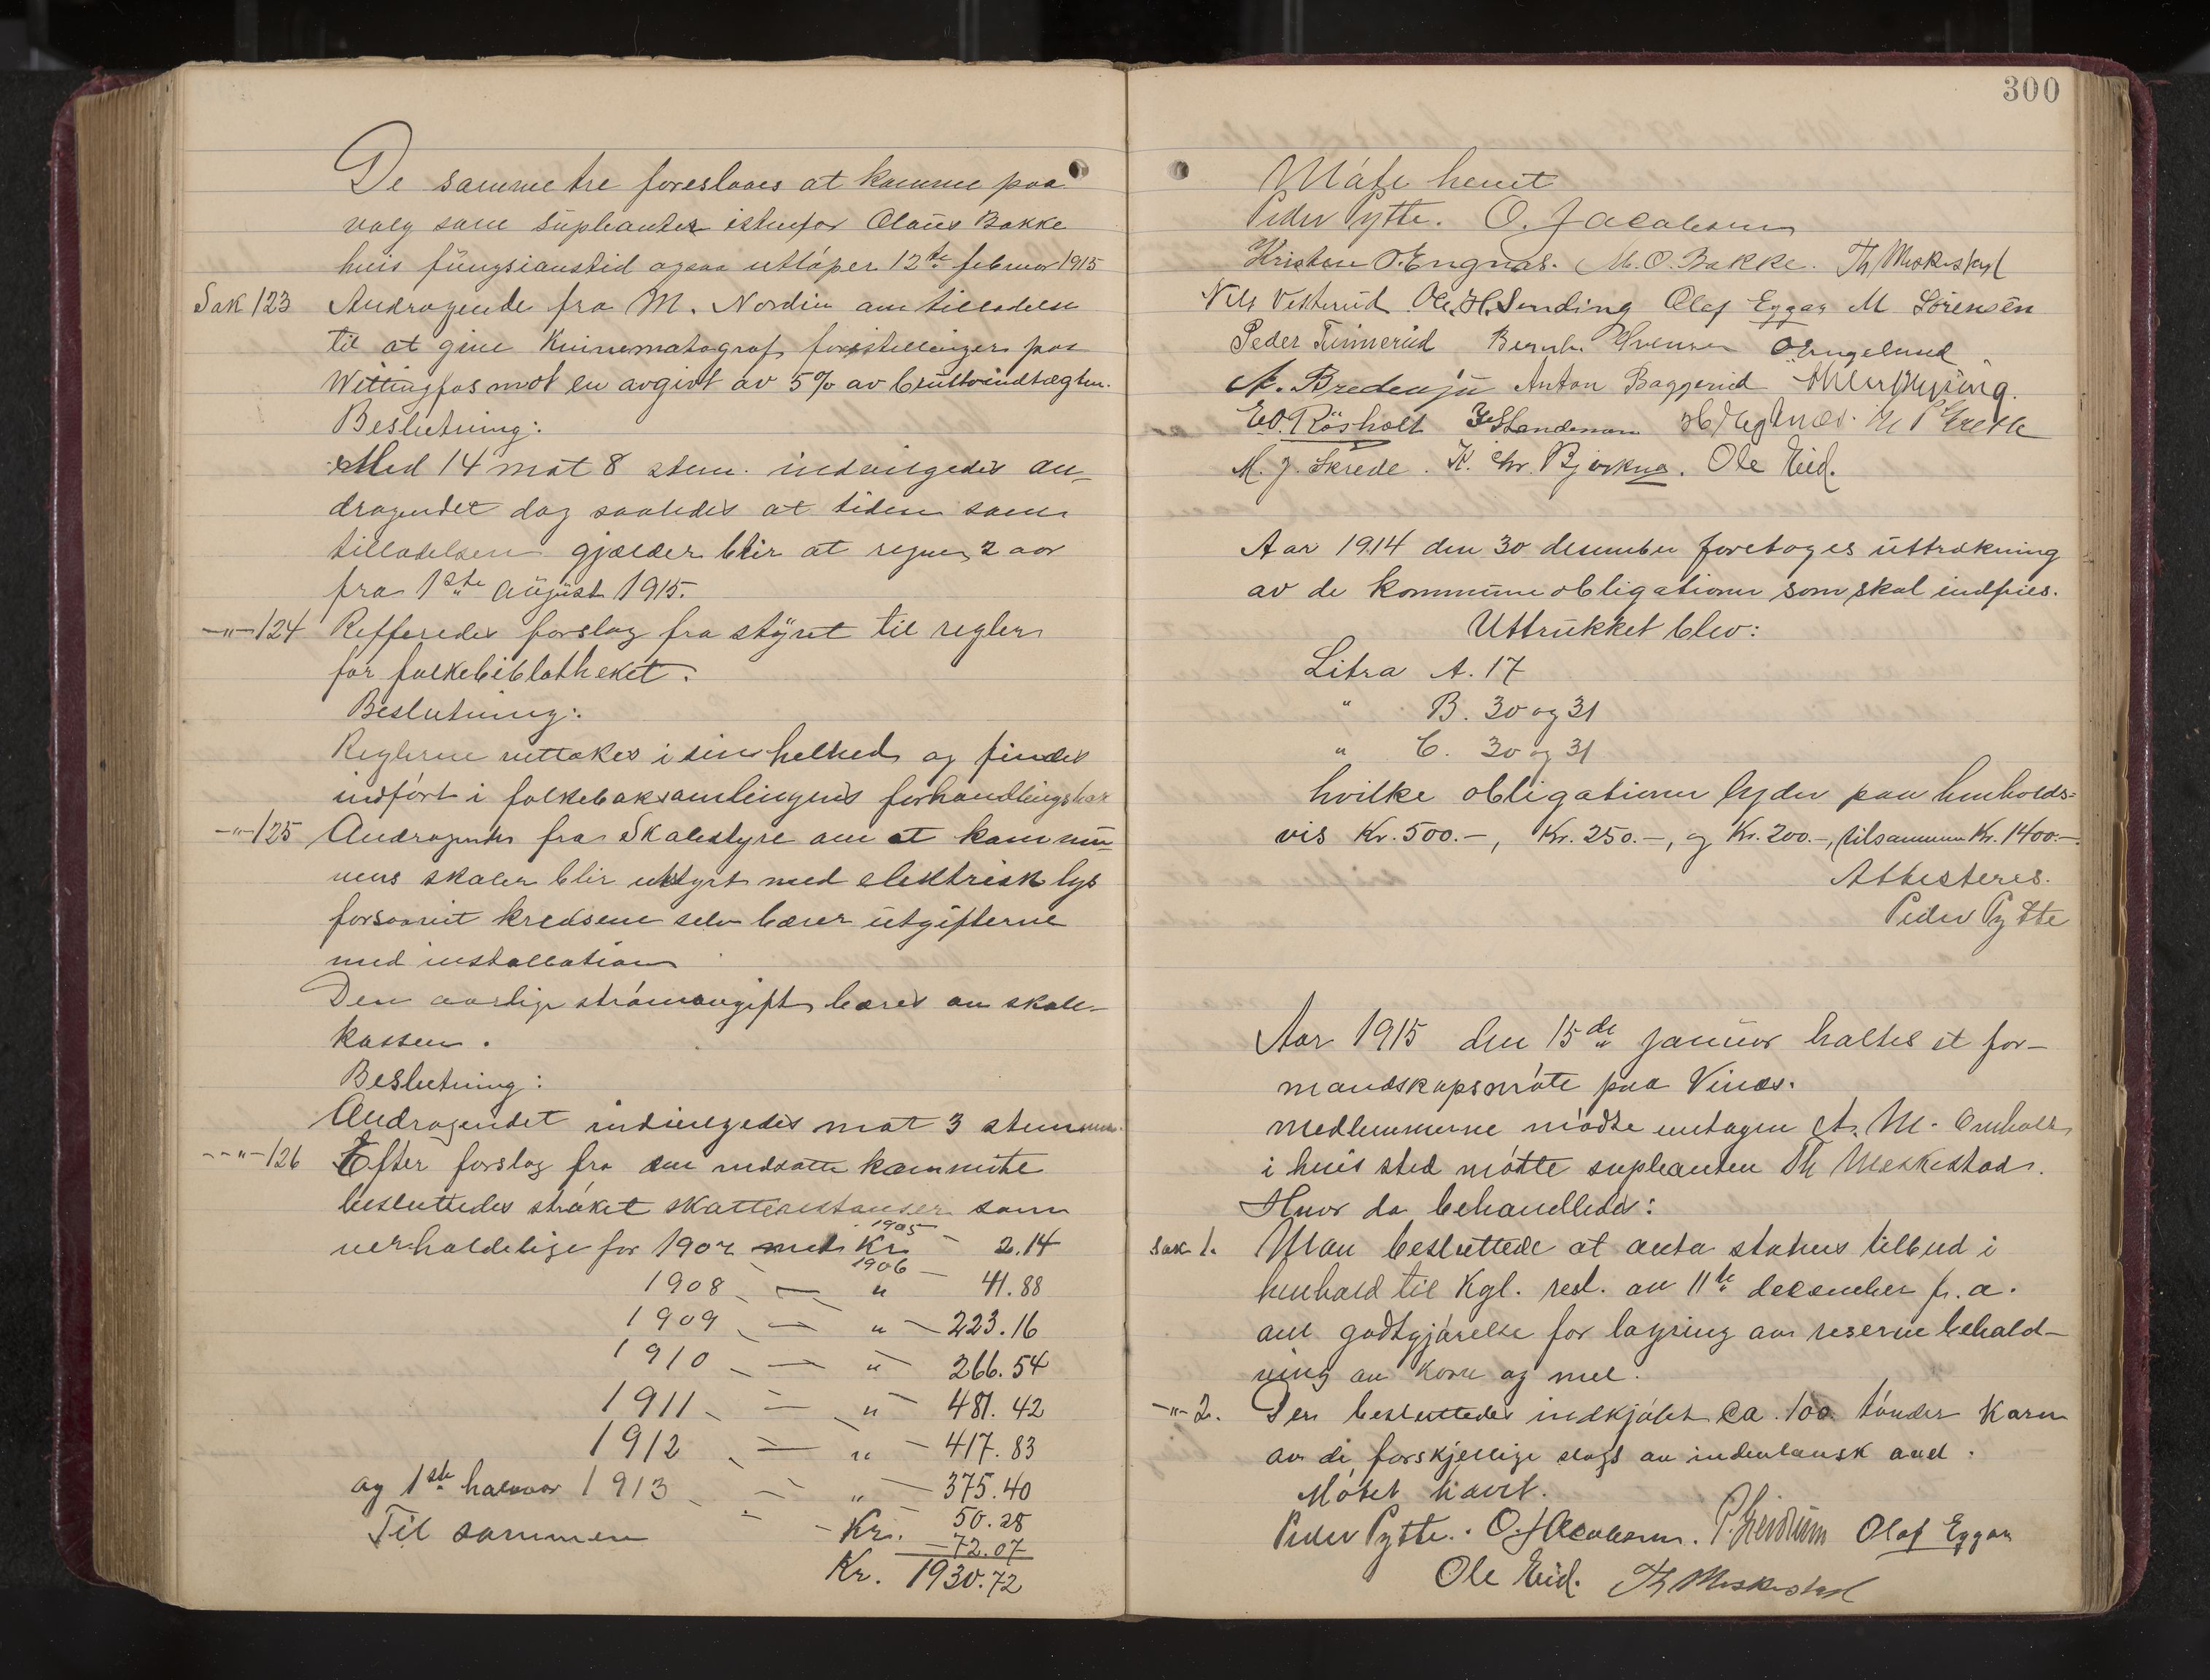 De samme tre foreslaaes at komme paa
valg som supleanter istenfor Olaus Bakke
hvis fungsjonstid ogsaa utløper 12te februar 1915
Sak 123 Andragende fra M. Nordin om tilladelse
til at give Kinematograf forestillinger paa
Wittingfos mot en avgivt av 5% av bruttoindtægten.
Beslutning:
Med 14 mot 8 stem. indvilgedes an-
dragendet dog saaledes at tiden som
tilladelsen gjælder blir at regne 2 aar
fra 1ste August 1915.
-"- 124 Refferedes forslag fra styret til regler
for folkebiblotheket.
Beslutning:
Reglerne vettokes i sin helhed og findes
indført i folkeboksamlingens forhandlingsbok
-"- 125 Andragende fra Skolestyre om at kommu-
nens skoler blir utstyrt med elektrisk lys
forsaavit kredsene selv bærer utgifterne
med installation
Den aarlige strømavgift bæres av skole-
kassen.
Beslutning:
Andragendet indvilgedes mot 3 stemmer.
-"- 126 Efter forslag fra den nedsatte kommite
besluttedes strøket skatterestanser som
uerholdelige for 1907 med Kr. 1905 - 2.14
1908 - — " 1906 - 41.88
1909 - — " - 223.16
1910 - — " - 266.54
1911 - — " - 481.42
1912 - — " - 417.83
og 1ste halvaar 1913 - — " - 375.40
- - 50.28
Til sammen Kr. - 72.07
Kr. 1930.72
300
Møte hevet
Peder Pytte. O. Jacobsen
Kristen O. Engnæs. M. O. Bakke. Th Meskestad
Nils Vetterud Ole H. Sending Olaf Eggar M Sørensen
Peder Tinnerud Bernh. Svensen O Engelund
A. Bredesen Anton Baggerud
E. O. Røsholt
M. J. Skrede. K. Chr. Bjørknes. Ole Eid.
Aar 1914 den 30 desember foretoges uttrækning
av de kommuneobligationer som skal indfries.
Uttrukket blev:
Litra A. 17
" B. 30 og 31
" C. 30 og 31
hvilke obligationer lyder paa henholds=
vis Kr. 500.-, Kr. 250.-, og Kr. 200.-, tilsammen Kr. 1400.-.
Attesteres.
Peder Pytte
Aar 1915 den 15de januar holtes et for-
mandskapsmøte paa Vinæs.
medlemmerne mødte untagen A. M. Omholt
i hvis sted møtte supleanten Th Meskestad.
Hvor da behandledes:
Sak 1. Man besluttede at anta statens tilbud i
henhold til Kgl. resl. av 11te december f. a.
om godtgjørelse for lagring av reservebehold-
ning av korn og mel.
-"- 2. Der besluttedes indkjøbt ca. 100 tønder Korn
av de forskjellige slags av indenlansk avel.
Møtet hævet.
Peder Pytte. O. Jacobsen. Olaf Eggar
Ole Eid. Th Meskestad